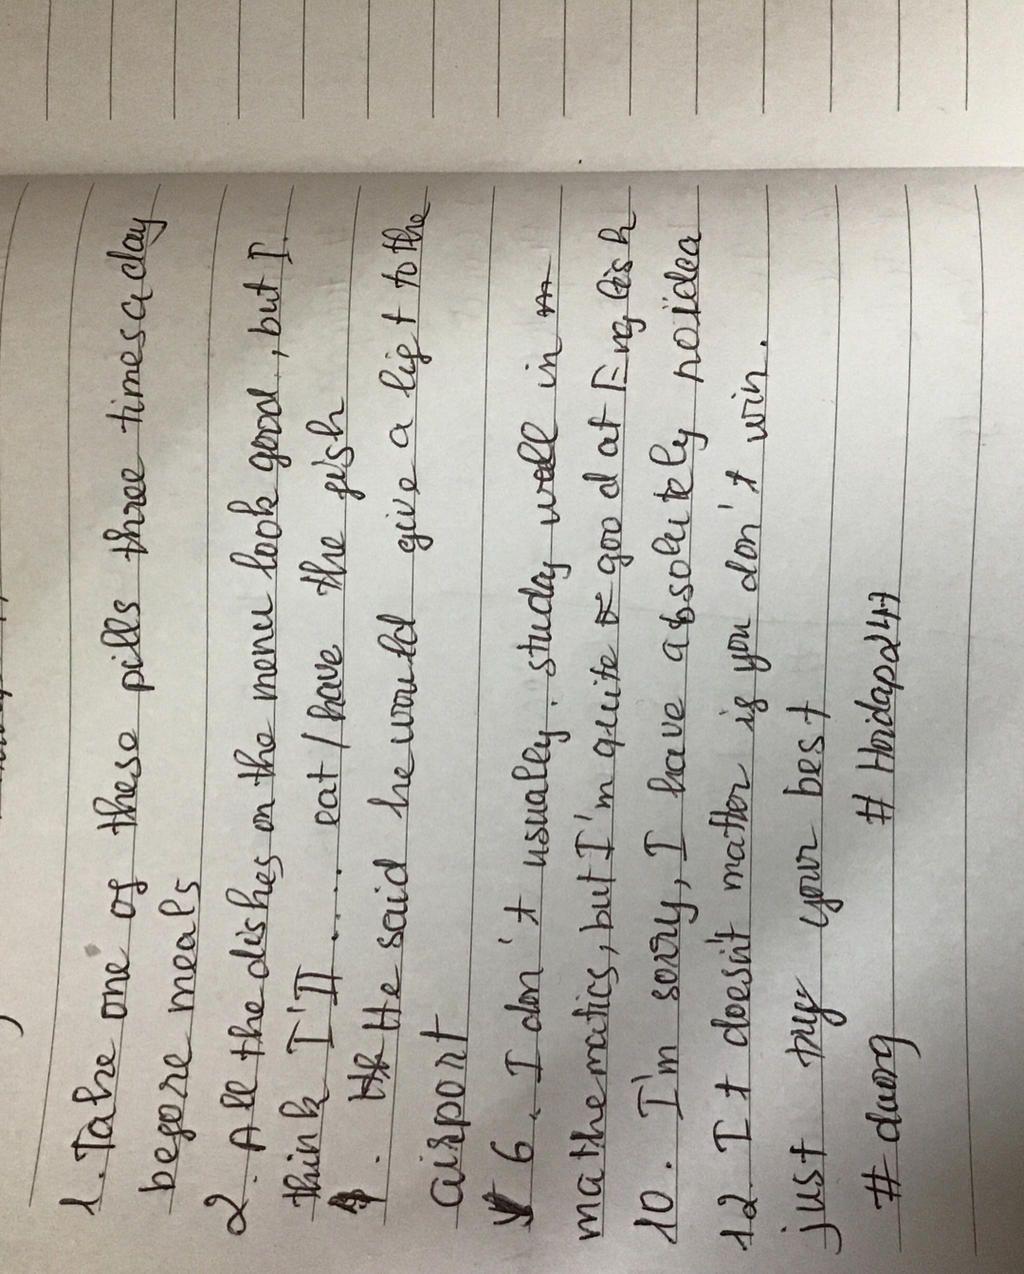 1. Take one of these pills three times a day
before meals
2. All the dishes on the menu look good, but I
think I'll .... eat / have the fish
He said he would give a lift to the
airport
6. I don't usually study well in
mathematics, but I'm quite good at English
10. I'm sorry, I have absolutely no idea
12. It doesn't matter if you don't win.
just try your best
# duong # Hoidap247